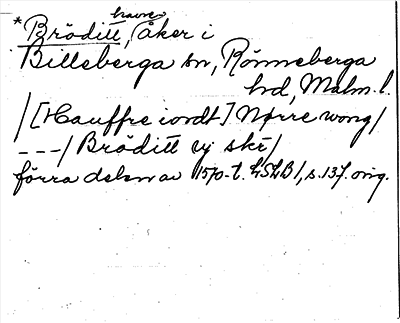 *Bröditt, havre åker i
Billeberga sn, Rönneberga
hd, Malm. l.
/[Hauffre iordt] Nørre wong/
---/ Bröditt vj skr/
förra delen av 1570-t. LSLB 1, s. 137. orig.